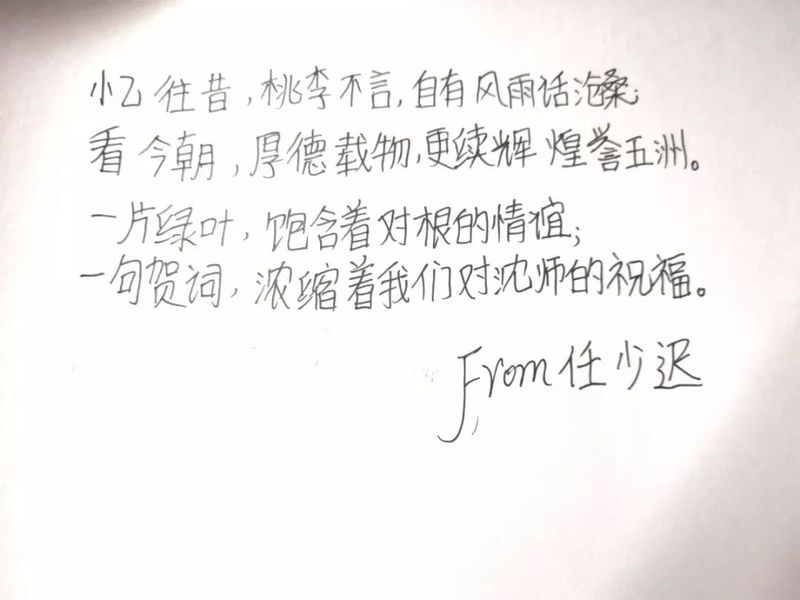 小乙往昔，桃李不言，自有风雨话沧桑；
看今朝，厚德载物，更续辉煌誉五洲。
一片绿叶，饱含着对根的情谊；
一句贺词，浓缩着我们对沈师的祝福。
From任少迟